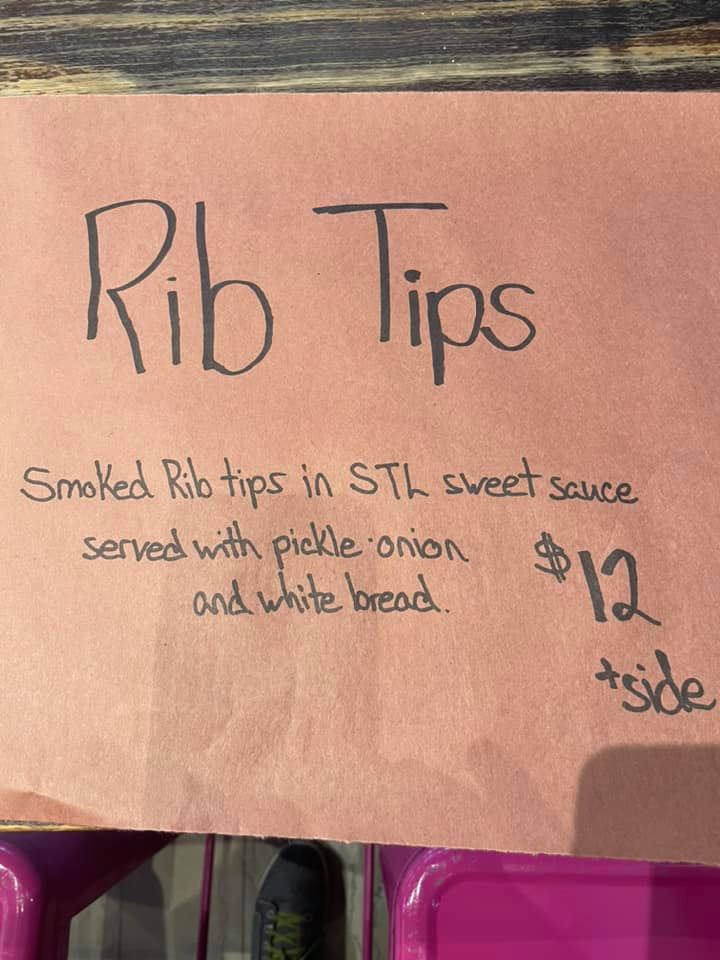 Rib Tips
Smoked Rib tips in STL sweet sauce
served with pickle·onion
and white bread.
$12
+side